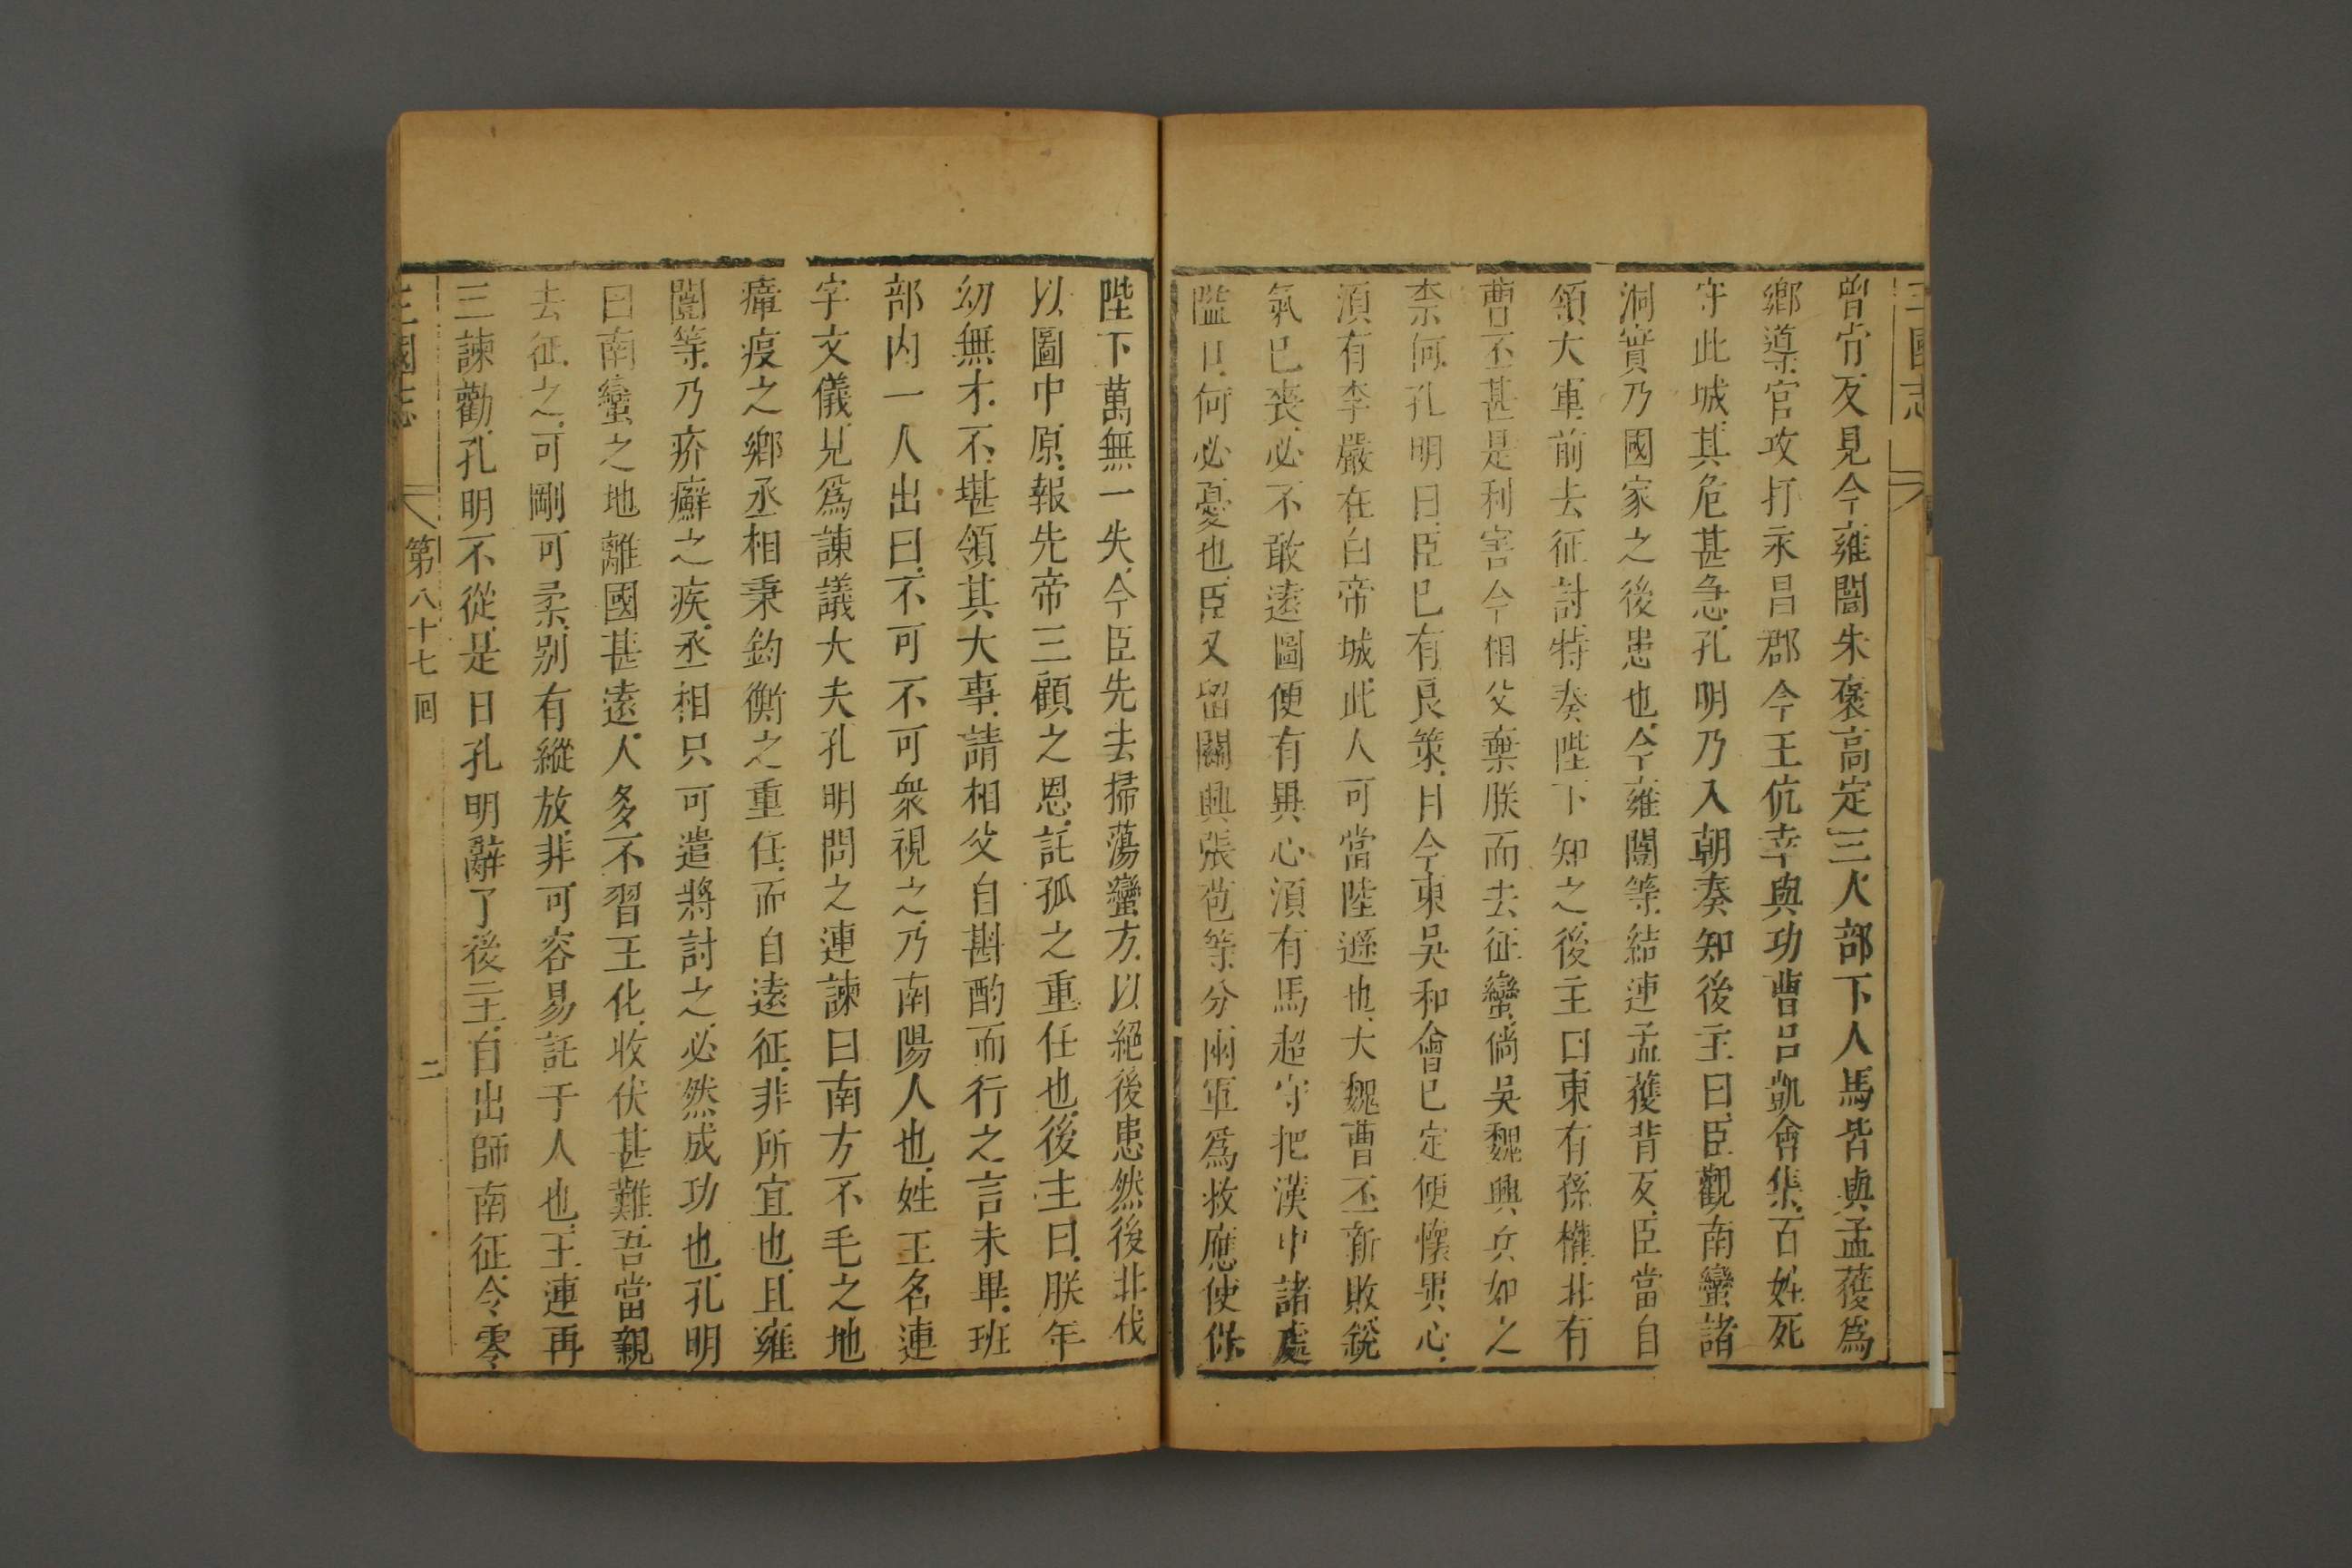 三國志
曾肯反見今雍闓朱褒高定三人部下人馬皆與孟獲爲
鄉導官攻打永昌郡今王伉幸與功曹呂凱會集百姓死
守此城其危甚急孔明乃入朝奏知後主曰臣觀南蠻諸
洞實乃國家之後患也今雍闓等結連孟獲背反臣當自
領大軍前去征討特奏陛下知之後主曰東有孫權北有
曹丕甚是利害今相父棄朕而去征蠻倘吳魏興兵如之
柰何孔明曰臣已有良策目今東吳和會已定便懷異心
須有李嚴在白帝城此人可當陸遜也大魏曹丕新敗銳
氣已喪必不敢遠圖便有異心須有馬超守把漢中諸處
隘口何必憂也臣又留關興張苞等分兩軍爲救應使保
陛下萬無一失今臣先去掃蕩蠻方以絕後患然後非伐
以圖中原報先帝三顧之恩託孤之重任也後主曰朕年
幼無才不堪領其大事請相父自斟酌而行之言未畢班
部內一人出曰不可不可衆視之乃南陽人也姓王名連
字文儀見爲諫議大夫孔明問之連諫曰南方不毛之地
瘴疫之鄉丞相秉鈞衡之重任而自遠征非所宜也且雍
闓等乃疥癬之疾丞相只可遣將討之必然成功也孔明
曰南蠻之地離國甚遠人多不習王化收伏甚難吾當親
去征之可剛可柔別有縱放非可容易託于人也王連再
三諫勸孔明不從是日孔明辭了後主自出師南征令零
三國志 第八十七回 二